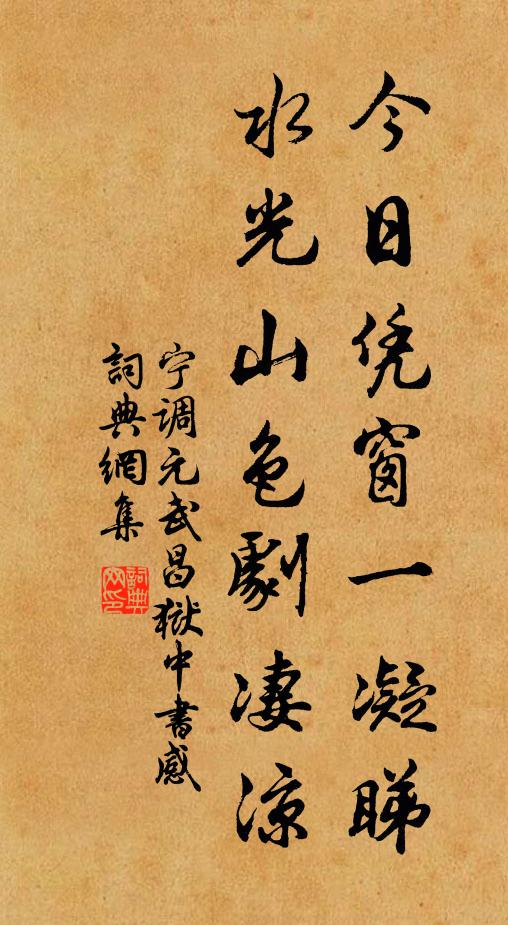 今日凭窗一凝睇
水光山色劇凄涼
宁調元武昌獄中書感
詞典網集
詞典网印